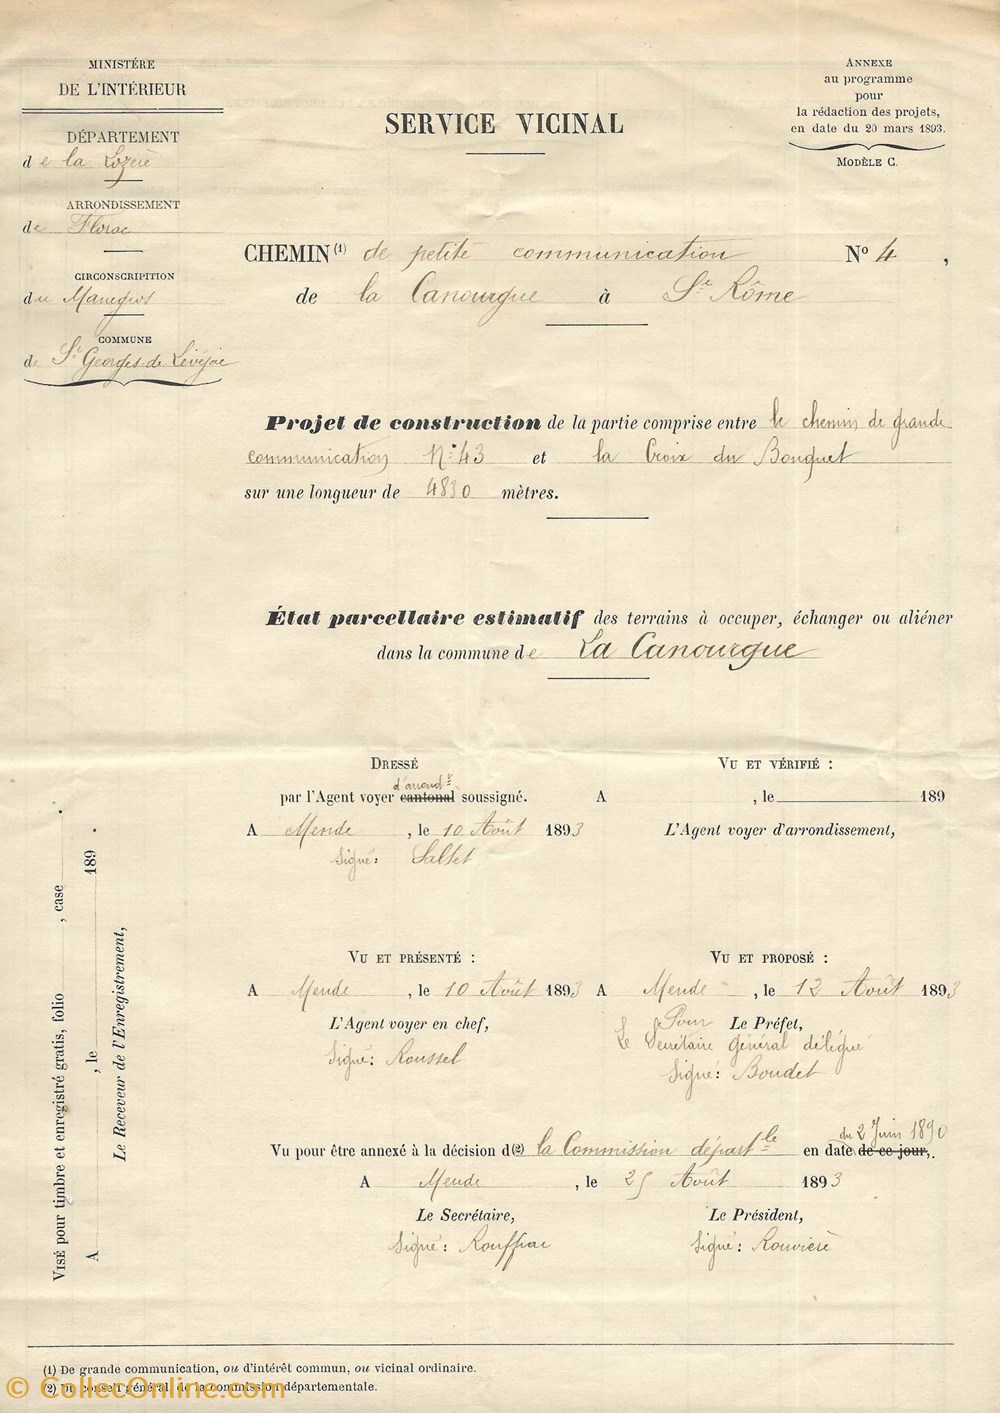 MINISTÉRE
DE L'INTÉRIEUR
DÉPARTEMENT
de la Lozère
ARRONDISSEMENT
de Florac
CIRCONSCRIPITION
du Massegros
COMMUNE
de St Georges-de Lévéjac
SERVICE VICINAL
ANNEXE
au programme
pour
la rédaction des projets,
en date du 20 mars 1893.
MODÈLE C.
CHEMIN (1) de petite communication No 4,
de la Canourgue à St Rôme
Projet de construction de la partie comprise entre le chemin de grande
communication No 43 et la Croix du Bouquet
sur une longueur de 4830 mètres.
État parcellaire estimatif des terrains à occuper, échanger ou aliéner
dans la commune de La Canourgue
DRESSÉ
d'arrondt
par l'Agent voyer cantonal soussigné.
A Mende, le 10 Août 1893
Signé: Saltet
VU ET VÉRIFIÉ :
A , le 189
L'Agent voyer d'arrondissement,
VU ET PRÉSENTÉ :
A Mende, le 10 Août 1893
L'Agent voyer en chef,
Signé: Roussel
VU ET PROPOSÉ :
A Mende, le 12 Août 1893
Pour Le Préfet,
Le Secrétaire général délégué
Signé: Boudet
du 2 Juin 1890
Vu pour être annexé à la décision d(2) la Commission départle en date de ce jour,.
A Mende, le 25 Août 1893
Le Secrétaire,
Signé: Rouffiac
Le Président,
Signé: Rouvière
VISÉ pour timbre et enregistré gratis, folio , case .
A , le 189 .
Le Receveur de l'Enregistrement,
(1) De grande communication, ou d'intérêt commun, ou vicinal ordinaire.
(2) Du conseil général, de la commission départementale.
© CollecOnline.com